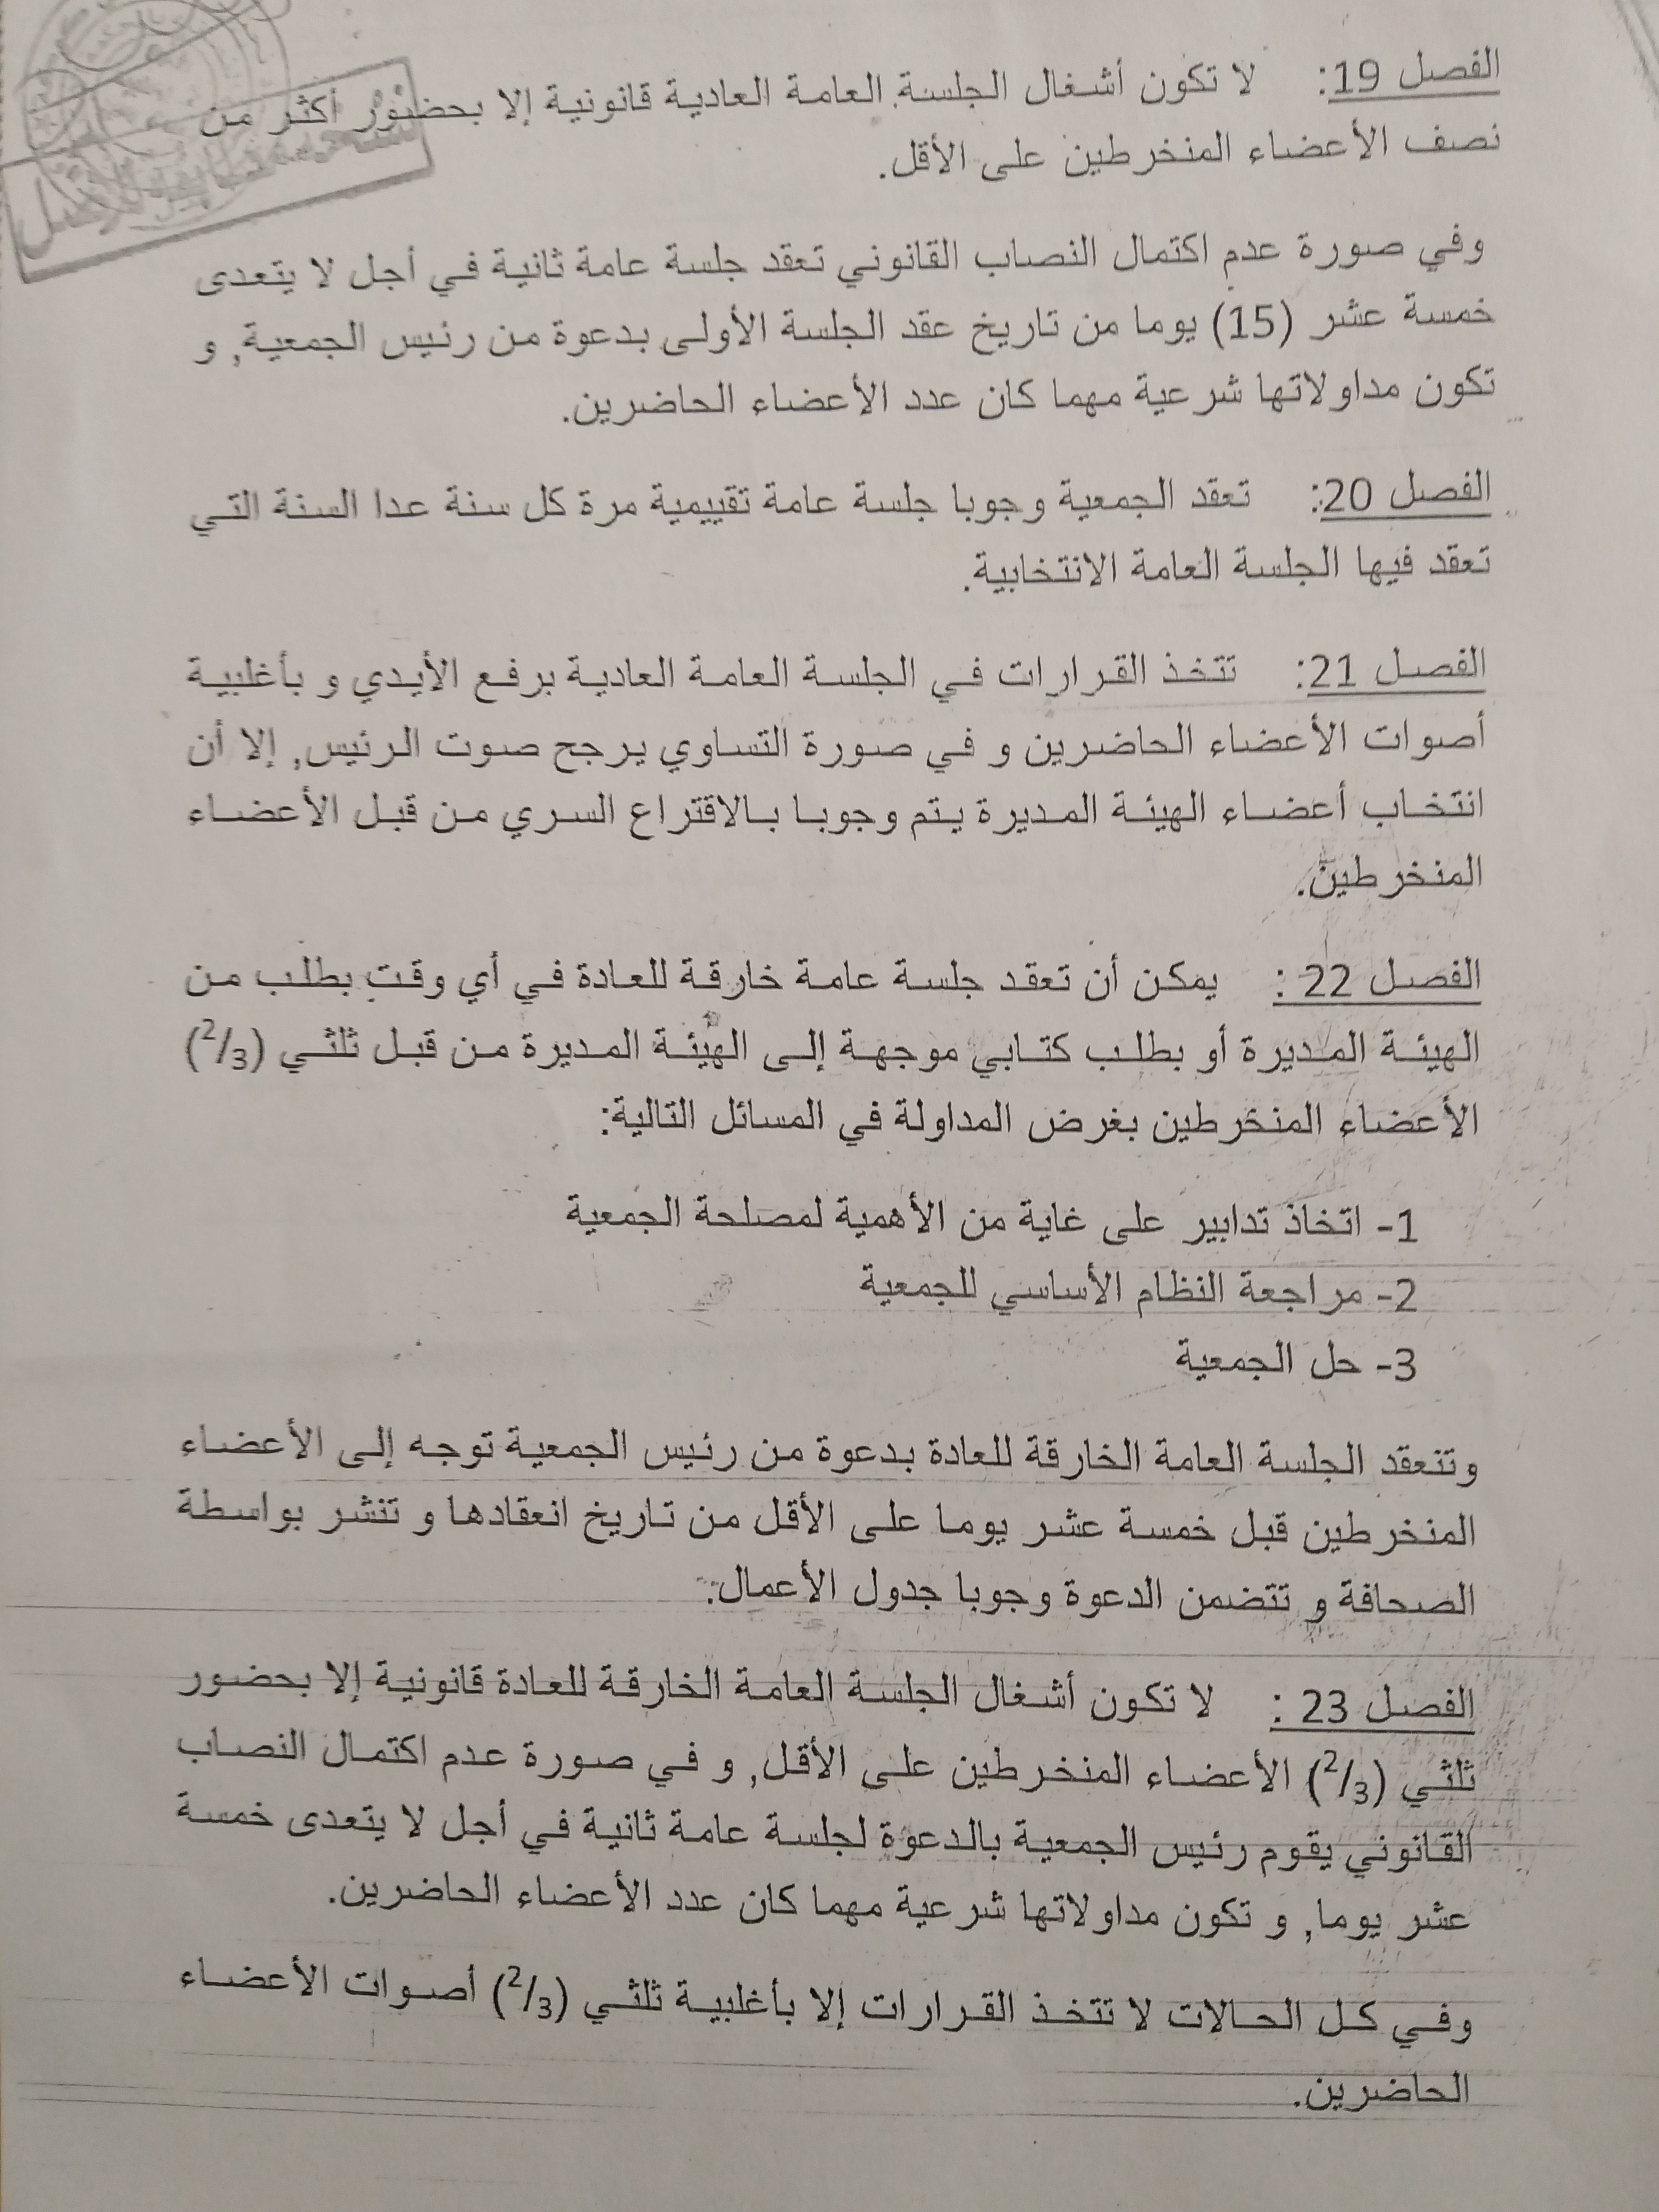 الفصل 19: لا تكون أشغال الجلسة العامة العادية قانونية إلا بحضور أكثر من
نصف الأعضاء المنخرطين على الأقل.
وفي صورة عدم اكتمال النصاب القانوني تعقد جلسة عامة ثانية في أجل لا يتعدى
خمسة عشر (15) يوما من تاريخ عقد الجلسة الأولى بدعوة من رئيس الجمعية, و
تكون مداولاتها شرعية مهما كان عدد الأعضاء الحاضرين.
الفصل 20: تعقد الجمعية وجوبا جلسة عامة تقييمية مرة كل سنة عدا السنة التي
تعقد فيها الجلسة العامة الانتخابية.
الفصل 21: تتخذ القرارات في الجلسة العامة العادية برفع الأيدي و بأغلبية
أصوات الأعضاء الحاضرين و في صورة التساوي يرجح صوت الرئيس, إلا أن
انتخاب أعضاء الهيئة المديرة يتم وجوبا بالاقتراع السري من قبل الأعضاء
المنخرطين.
الفصل 22 : يمكن أن تعقد جلسة عامة خارقة للعادة في أي وقت بطلب من
الهيئة المديرة أو بطلب كتابي موجهة إلى الهيئة المديرة من قبل ثلثي (2/3)
الأعضاء المنخرطين بغرض المداولة في المسائل التالية:
1- اتخاذ تدابير على غاية من الأهمية لمصلحة الجمعية
2- مراجعة النظام الأساسي للجمعية
3- حل الجمعية
وتنعقد الجلسة العامة الخارقة للعادة بدعوة من رئيس الجمعية توجه إلى الأعضاء
المنخرطين قبل خمسة عشر يوما على الأقل من تاريخ انعقادها و تنشر بواسطة
الصحافة و تتضمن الدعوة وجوبا جدول الأعمال.
الفصل 23 : لا تكون أشغال الجلسة العامة الخارقة للعادة قانونية إلا بحضور
ثلثي (2/3) الأعضاء المنخرطين على الأقل, و في صورة عدم اكتمال النصاب
القانوني يقوم رئيس الجمعية بالدعوة لجلسة عامة ثانية في أجل لا يتعدى خمسة
عشر يوما, و تكون مداولاتها شرعية مهما كان عدد الأعضاء الحاضرين.
وفي كل الحالات لا تتخذ القرارات إلا بأغلبية ثلثي (2/3) أصوات الأعضاء
الحاضرين.